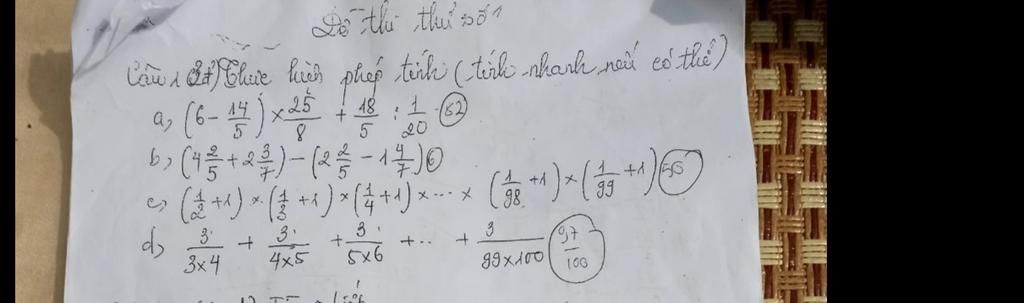 Đề thi thử số 1
Câu 1 (3đ) Thực hiện phép tính (tính nhanh nếu có thể)
a, (6 - 14/5) × 25/8 + 18/5 : 1/20 (82)
b, (4 2/5 + 2 3/7) - (2 2/5 - 1 4/7) (6)
c, (1/2 + 1) × (1/3 + 1) × (1/4 + 1) × ... × (1/98 + 1) × (1/99 + 1) (50)
d, 3/3×4 + 3/4×5 + 3/5×6 + ... + 3/99×100 (97/100)